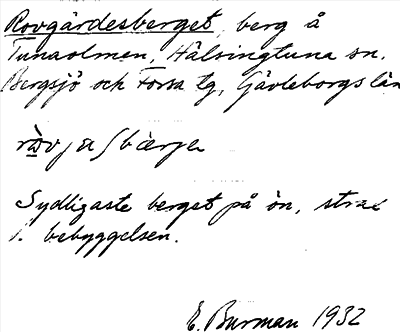 Rovgårdesberget, berg å
Tunaolmen, Hälsingtuna sn.
Bergsjö och Forsa tg, Gävleborgs län
Sydligaste berget på ön, strax
i. bebyggelsen.
E. Burman 1932